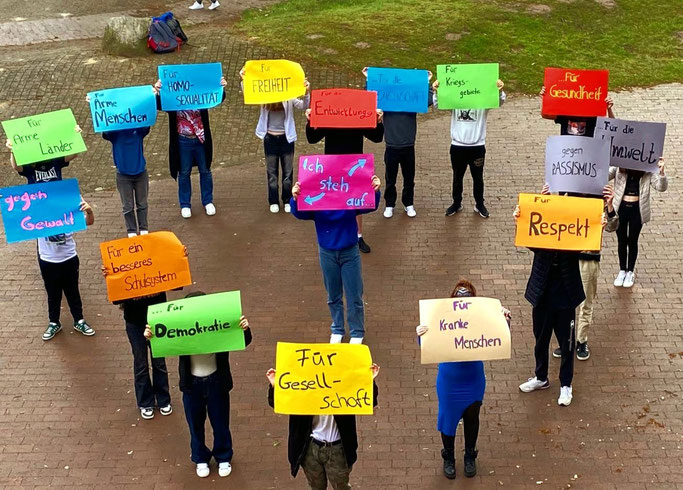 Für
Arme Länder
Für
Arme
Menschen
Für
Homo-
SEXUALITÄT
Für
FREIHEIT
Für die
Für
Entwicklungs
Für
Kriegs-
gebiete
...Für
Gesundheit
Für die
Umwelt
gegen
RASSISMUS
Für
Respekt
Ich
steh
auf...
gegen
Gewalt
EVERLAST
Für ein
besseres
Schulsystem
... Für
Demokratie
Für
Kranke
Menschen
Für
Gesell-
schaft